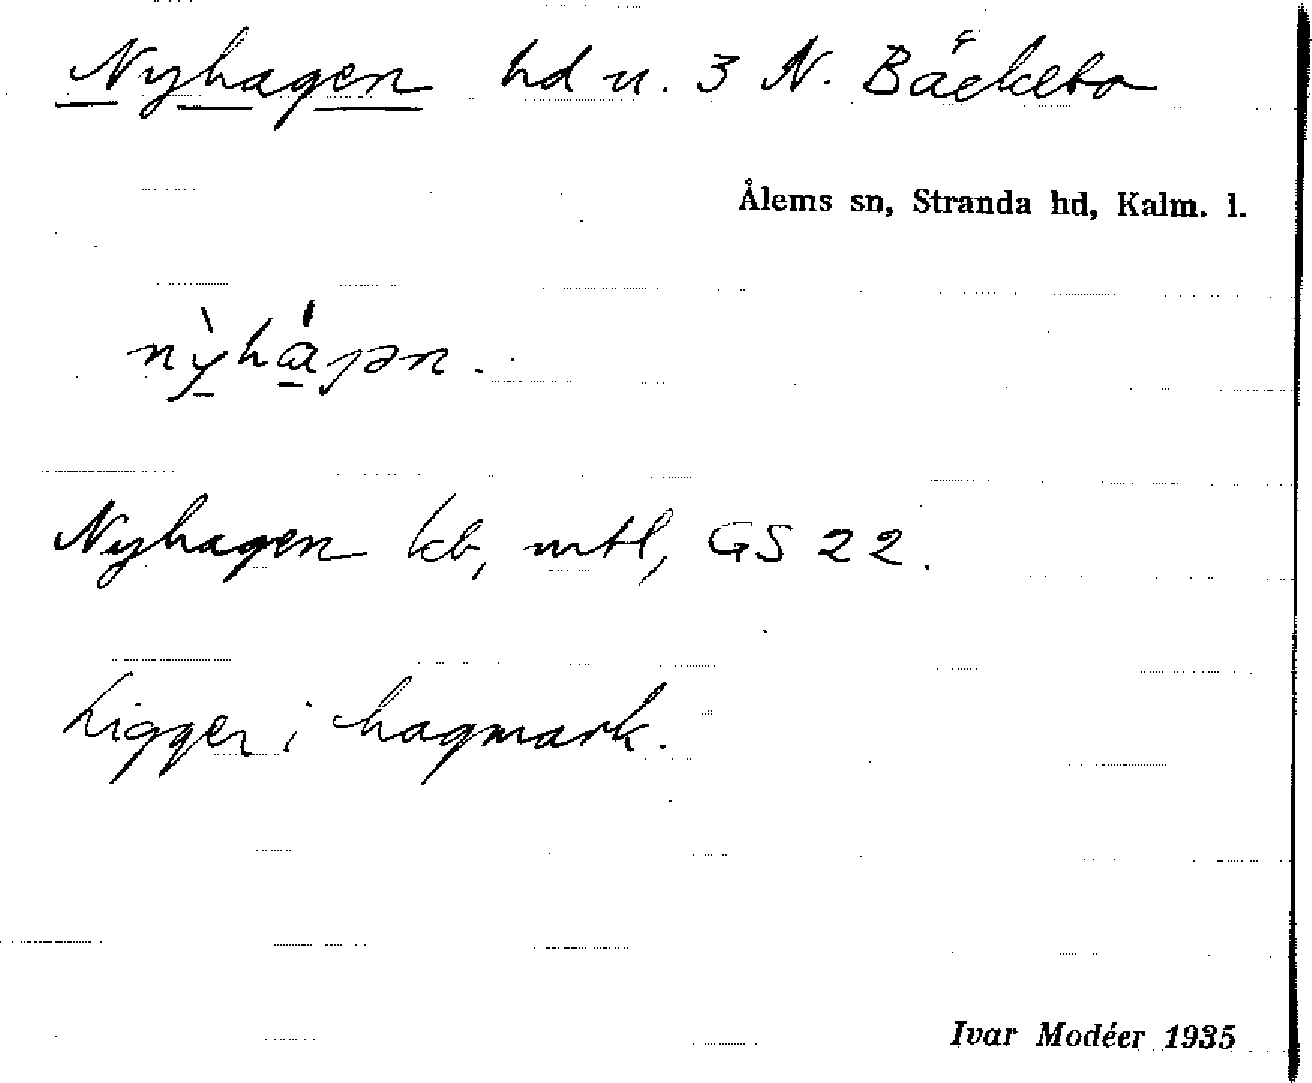 Nyhagen hd u. 3 N. Bäckebo
Ålems sn, Stranda hd, Kalm. l.
nỳhágən.
Nyhagen kb, mtl, GS 22.
Ligger i hagmark.
Ivar Modéer 1935